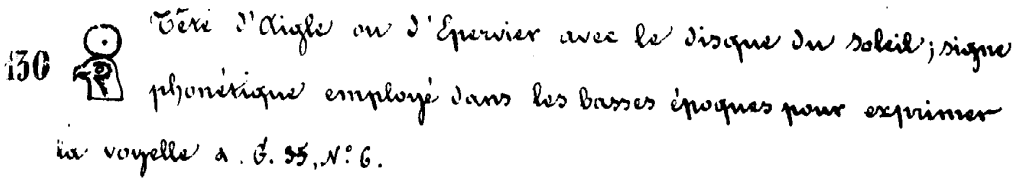 130 Tête d'Aigle ou d'Epervier avec le disque du soleil; signe
phonétique employé dans les basses époques pour exprimer
la voyelle a. G. 35, N.º 6.